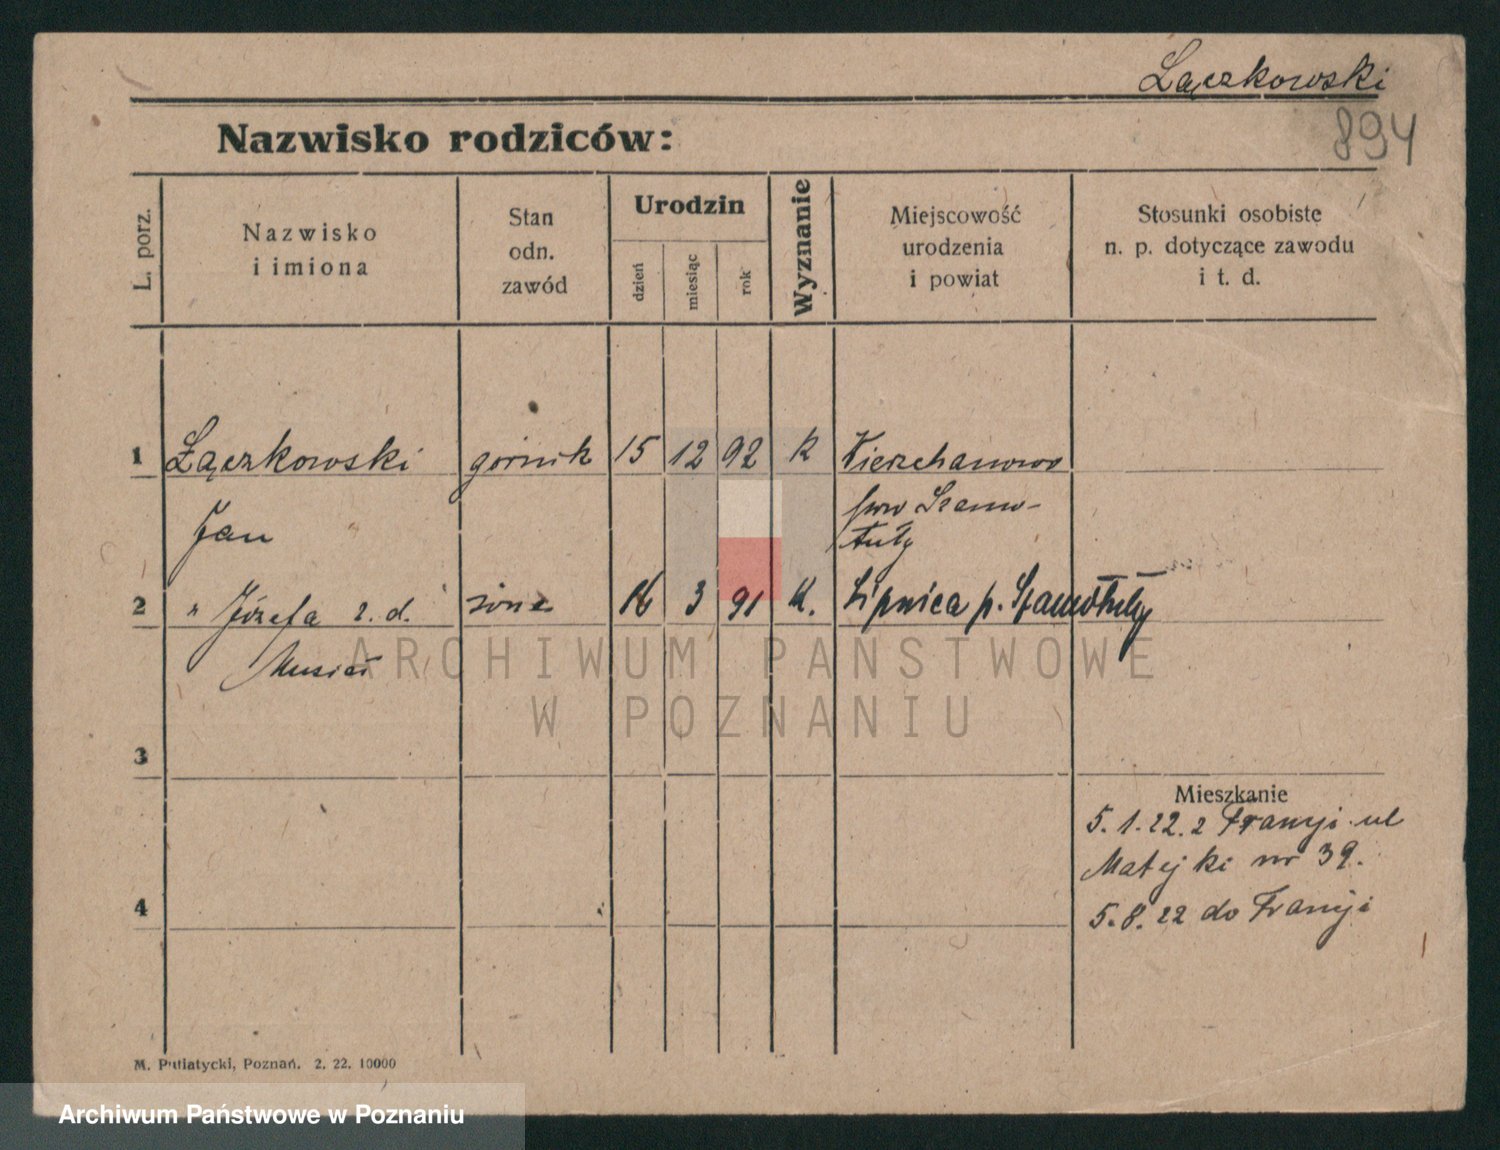 Łączkowski
894
Nazwisko rodziców:
L. porz.
Nazwisko
i imiona
Stan
odn.
zawód
Urodzin
dzień
miesiąc
rok
Wyznanie
Miejscowość
urodzenia
i powiat
Stosunki osobiste
n. p. dotyczące zawodu
i t. d.
1 Łączkowski górnik 15 12 92 k Wierzchaczewo
Jan pow Szamo-
tuły
2 " Józefa z. d. żona 16 3 91 k. Lipnica p. Szamotuły
Musiał
3
Mieszkanie
5.1.22. z Francji ul
Matejki nr 39.
4
5.8.22 do Francji
M. Putiatycki, Poznań. 2. 22. 10000
ARCHIWUM PAŃSTWOWE
W POZNANIU
Archiwum Państwowe w Poznaniu